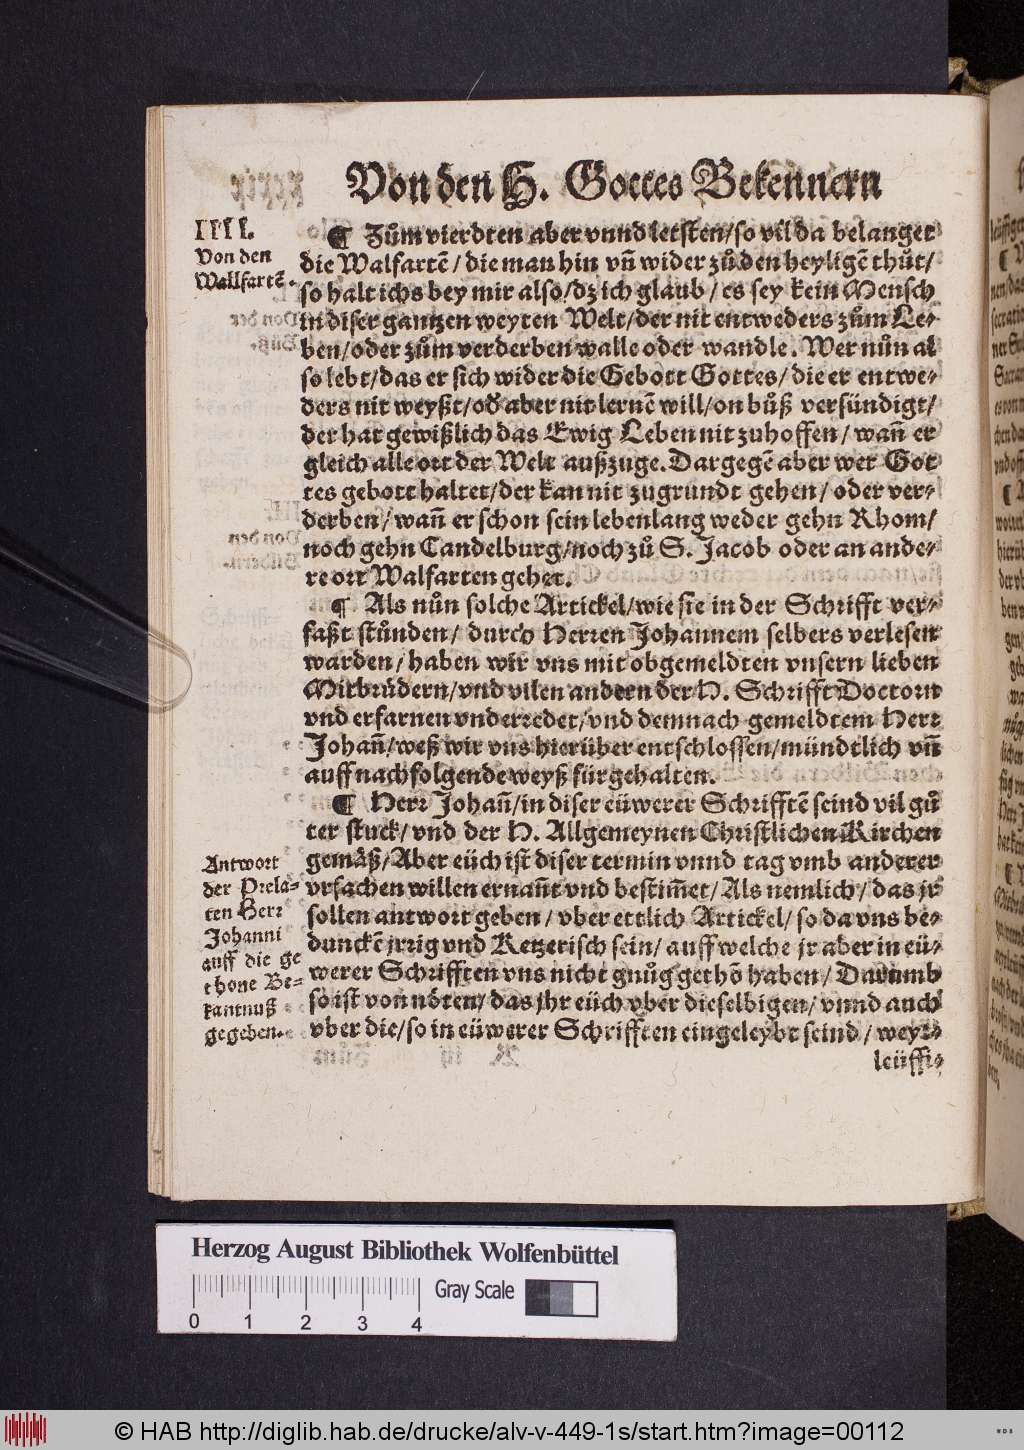 Von den H. Gottes Bekennern
IIII.
Von den
Wallfartẽ.
¶ Zům vierdten aber vnnd letsten/so vil da belanget
die Walfartẽ/die man hin vñ wider zů den heyligẽ thůt/
so halt ichs bey mir also/dz ich glaub/es sey kein Mensch
in diser gantzen weyten Welt/der nit entweders zům Le-
ben/oder zům verderben walle oder wandle. Wer nůn al
so lebt/das er sich wider die Gebott Gottes/die er entwe-
ders nit weyßt/oď aber nit lernẽ will/on bůß versündigt/
der hat gewißlich das Ewig Leben nit zuhoffen/wañ er
gleich alle ort der Welt außzuge. Dargegẽ aber wer Got
tes gebott haltet/der kan nit zugrundt gehen/oder ver-
derben/wañ er schon sein lebenlang weder gehn Rhom/
noch gehn Candelburg/noch zů S. Jacob oder an ande-
re ort Walfarten gehet.
¶ Als nůn solche Artickel/wie sie in der Schrifft ver-
faßt stůnden/durch Herren Johannem selbers verlesen
warden/haben wir vns mit obgemeldten vnsern lieben
Mitbrüdern/vnd vilen andren der H. Schrifft Doctorn
vnd erfarnen vnderredet/vnd demnach gemeldtem Herr
Johañ/weß wir vns hierüber entschlossen/mündtlich vñ
auff nachfolgende weyß fürgehalten.
¶ Herr Johañ/in diser eüwerer Schrifftẽ seind vil gů
ter stuck/vnd der H. Allgemeynen Christlichen Kirchen
gemäß/Aber eüch ist diser termin vnnd tag vmb anderer
vrsachen willen ernañt vnd bestim̃et/Als nemlich/das jr
sollen antwort geben/vber ettlich Artickel/so da vns be-
dunckẽ jrrig vnd Ketzerisch sein/auff welche jr aber in eü-
werer Schrifften vns nicht gnůg gethõ haben/Darumb
so ist von nöten/das jhr eüch vber dieselbigen/vnnd auch
vber die/so in eüwerer Schrifften eingeleybt seind/weyt-
leüffi-
Antwort
der Prela-
ten Herr
Johanni
auff die ge
thone Be-
kantnuß
gegeben.
Herzog August Bibliothek Wolfenbüttel
Gray Scale
0 1 2 3 4
© HAB http://diglib.hab.de/drucke/alv-v-449-1s/start.htm?image=00112